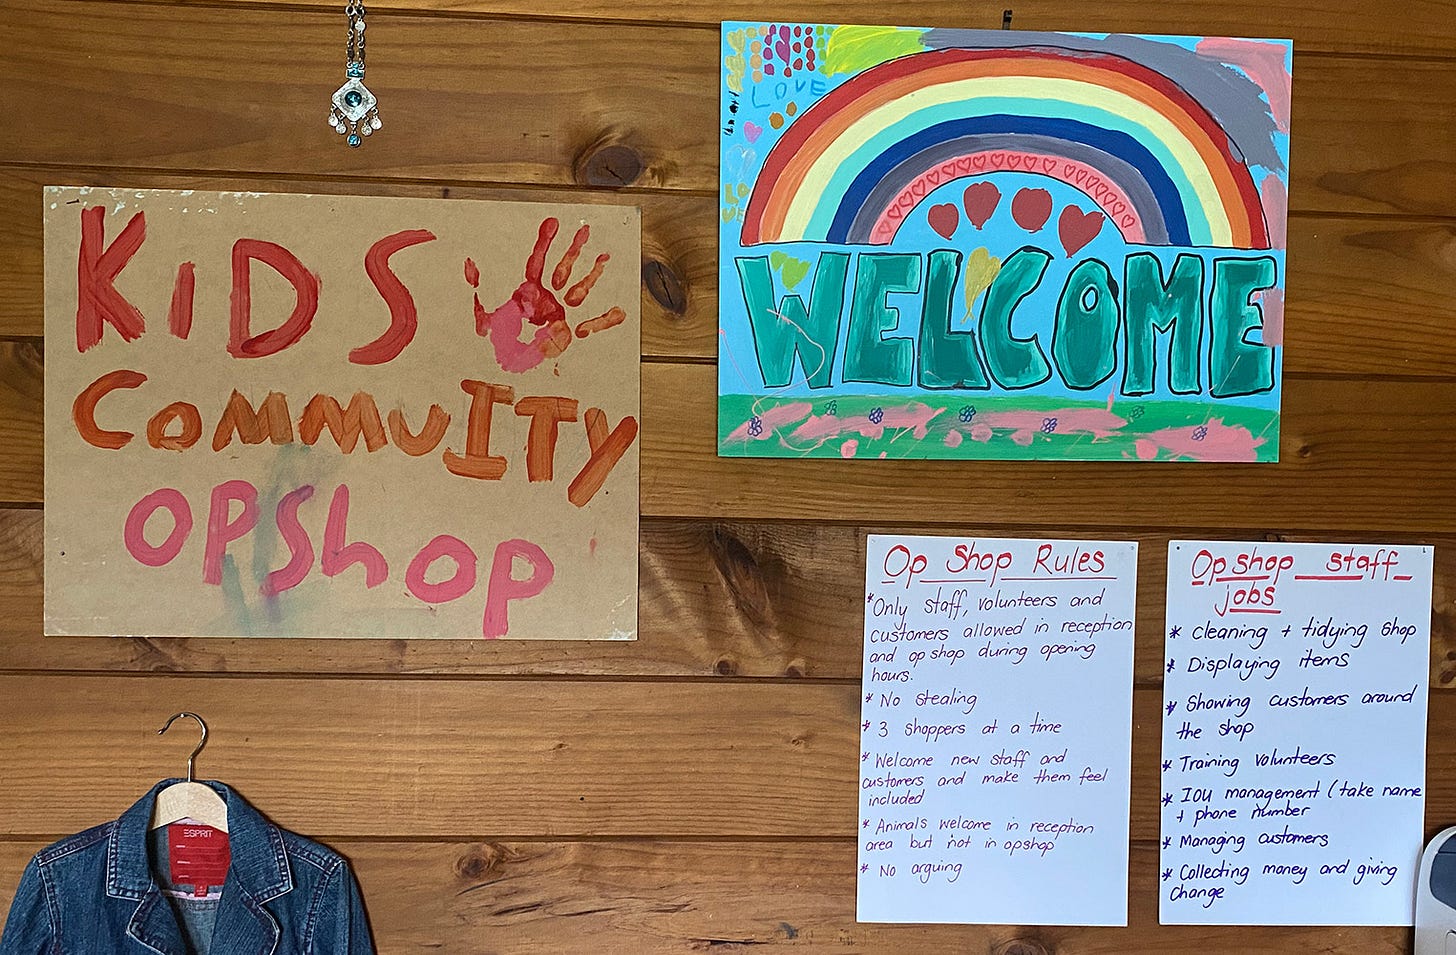 KiDS
COMMUITY
OPShop
LOVE
LOVE
WELCOME
Op Shop Rules
*Only staff, volunteers and
customers allowed in reception
and op shop during opening
hours.
* No stealing
* 3 shoppers at a time
*Welcome new staff and
customers and make them feel
included
* Animals welcome in reception
area but not in opshop
* No arguing
Opshop staff
jobs
* Cleaning + tidying shop
* Displaying items
* Showing customers around
the shop
* Training volunteers
* IOU management (take name
+ phone number
* Managing customers
* Collecting money and giving
change
ESPRIT